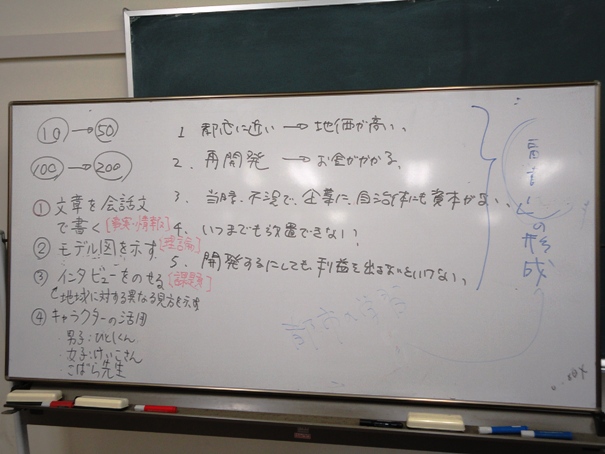 10→50
100→200
① 文章を会話文
で書く[事実・情報]
② モデル図を示す[理論]
③ インタビューをのせる[課題]
地域に対する異なる見方を示す
④ キャラクターの活用
・男子：ひとしくん
・女子：けいこさん
・こばら先生
1. 都心に近い → 地価が高い、
2. 再開発 → お金がかかる、
3. 当時、不況で、企業に、自治体にも資本がない、
4. いつまでも放置できない、
5. 開発するにしても、利益を出さないといけない、
の形成